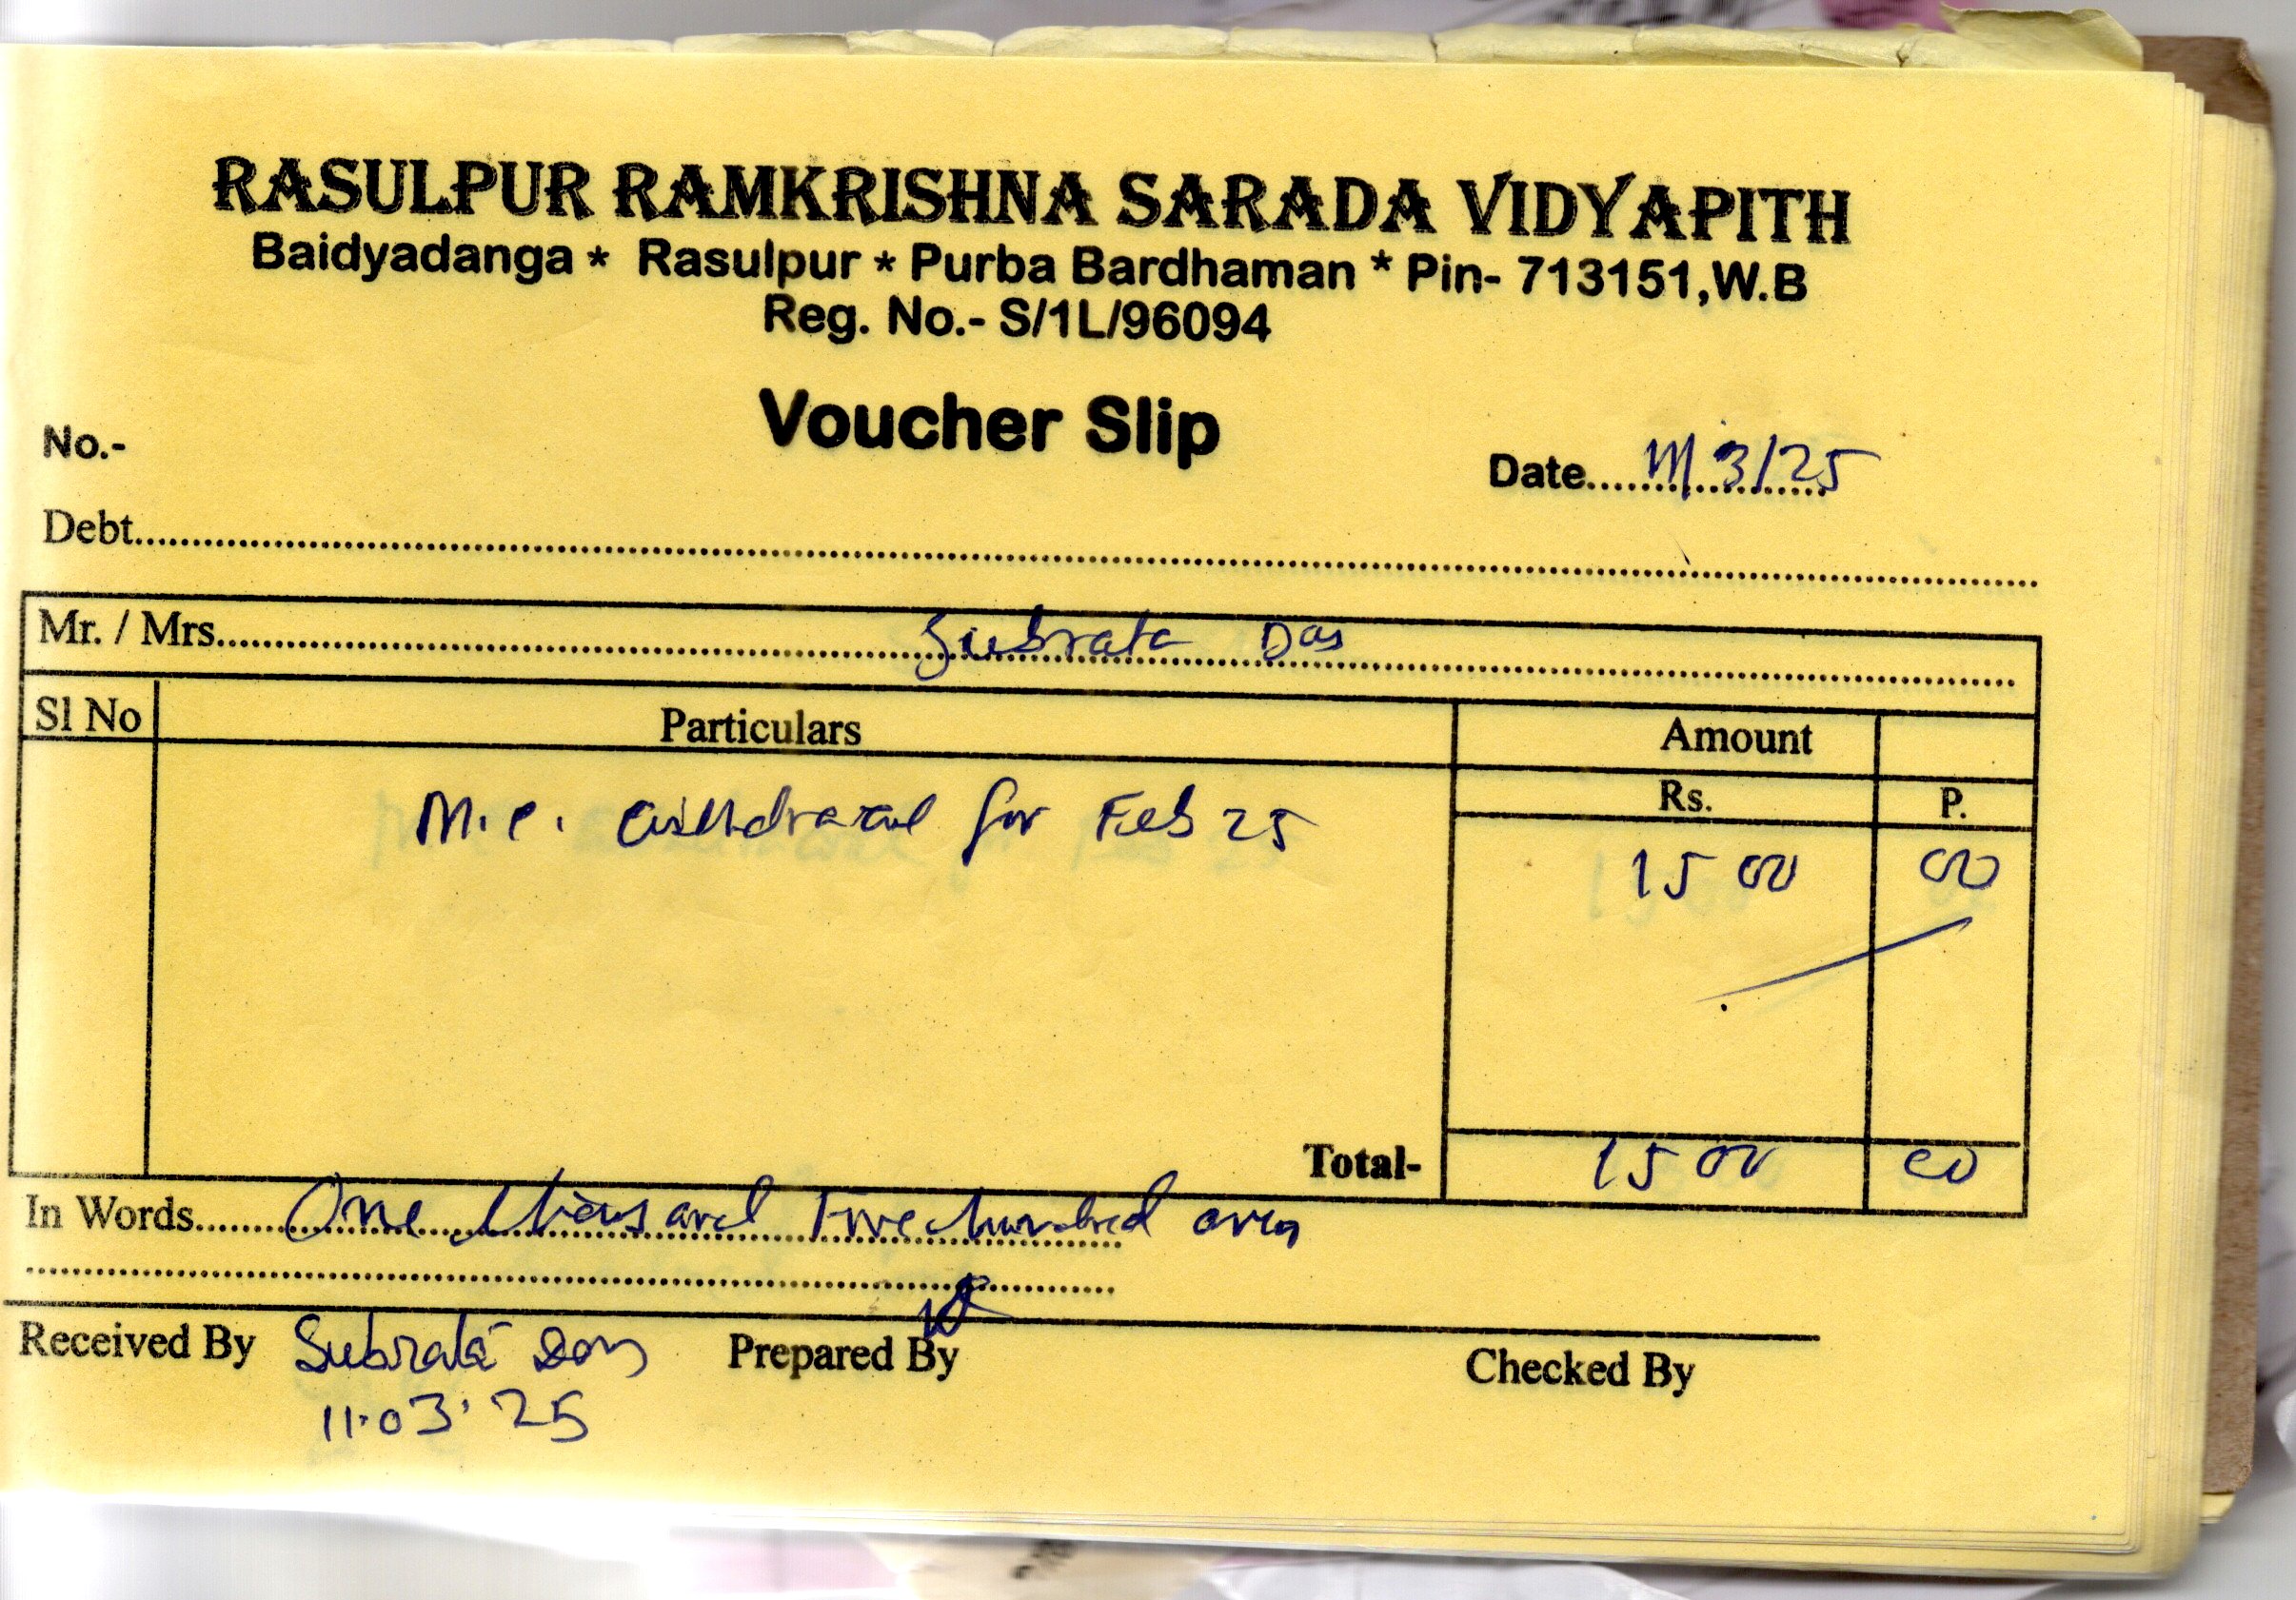 RASULPUR RAMKRISHNA SARADA VIDYAPITH
Baidyadanga * Rasulpur * Purba Bardhaman * Pin- 713151,W.B
Reg. No.- S/1L/96094
Voucher Slip
No.-
Date....11/3/25
Debt
Mr. / Mrs. Subrata Das
Sl No Particulars Amount
Rs. P.
M.C. withdrawal for Feb 25
1500 00
Total- 1500 00
In Words One thousand Five hundred only
Received By Subrata Das Prepared By Checked By
11.03.25